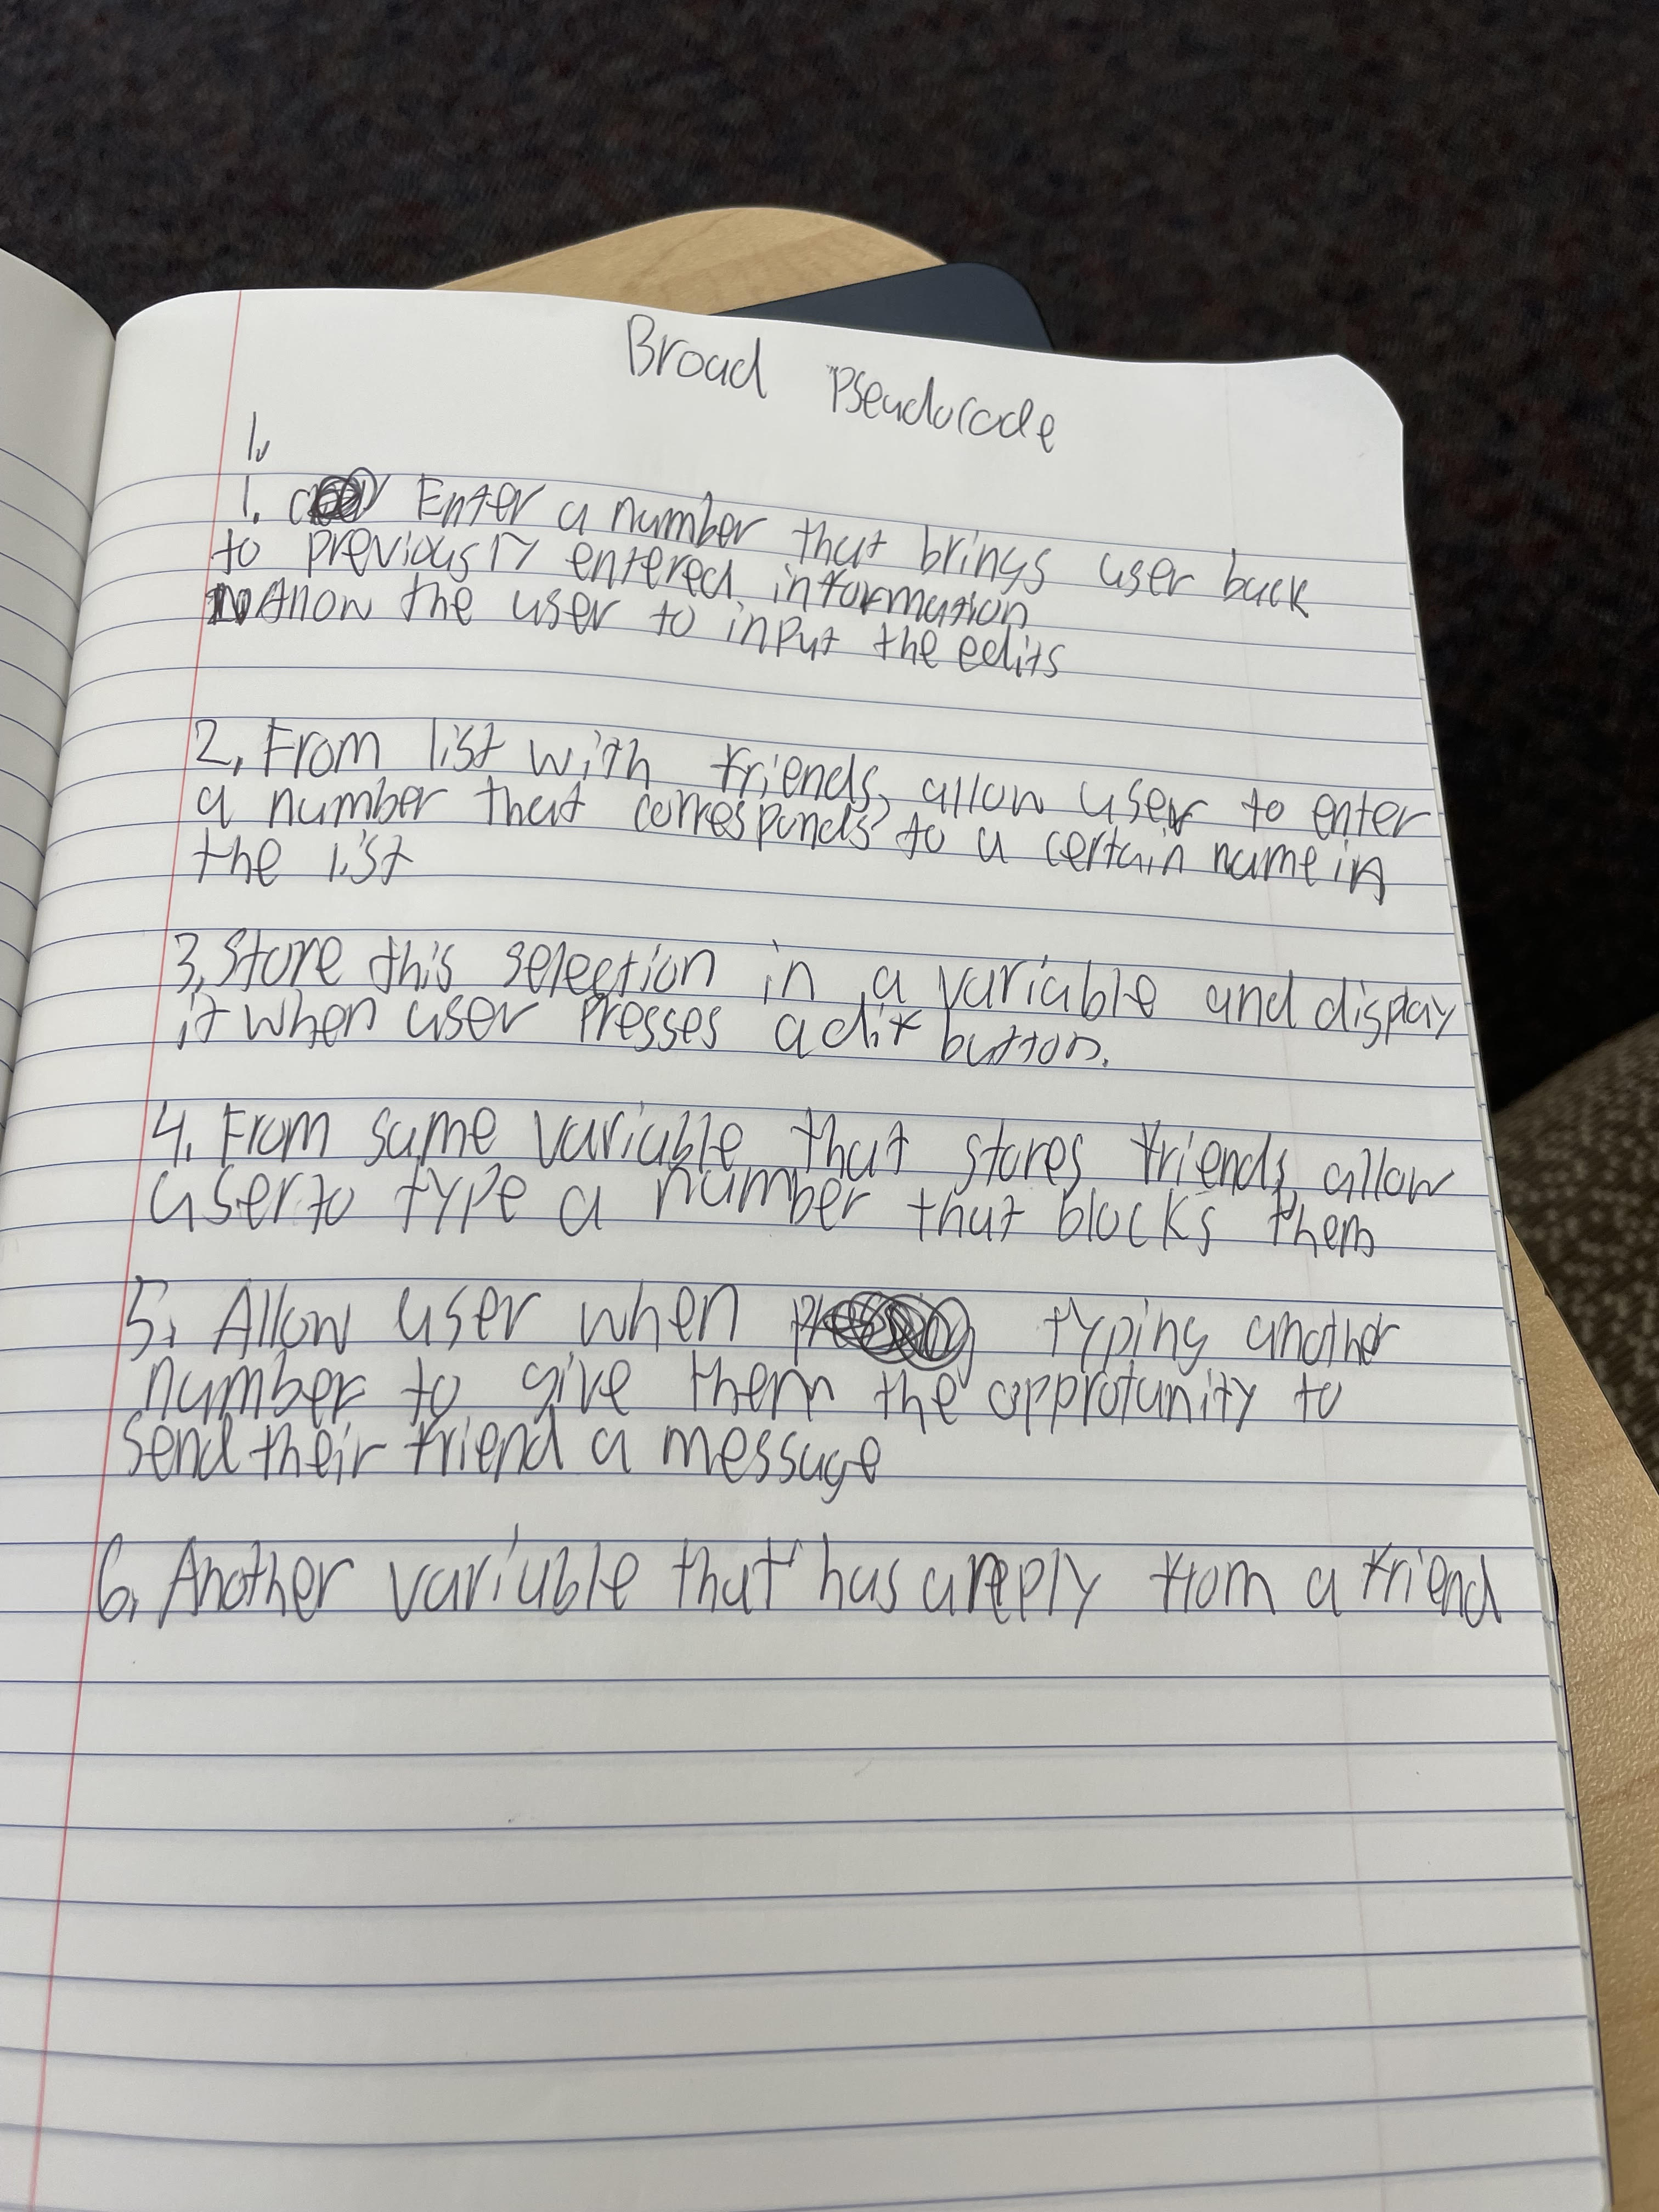 Broad Pseudocode
1.
1. Enter a number that brings user back
to previously entered information
Allow the user to input the edits
2. From list with friends, allow user to enter
a number that corresponds to a certain name in
the list
3. Store this selection in a variable and display
it when user presses a dif button.
4. From same variable that stores friends, allow
user to type a number that blocks them
5. Allow user when typing another
number to give them the opprotunity to
send their friend a message
6. Another variable that has a reply from a friend